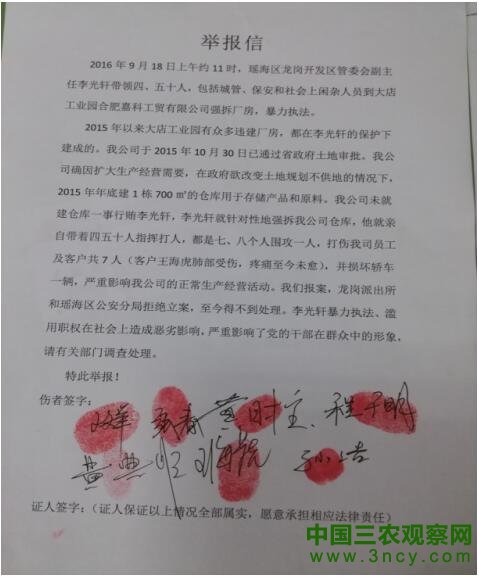 举报信
2016 年 9 月 18 日上午约 11 时，瑶海区龙岗开发区管委会副主
任李光轩带领四、五十人，包括城管、保安和社会上闲杂人员到大店
工业园合肥嘉科工贸有限公司强拆厂房，暴力执法。
2015 年以来大店工业园有众多违建厂房，都在李光轩的保护下
建成的。我公司于 2015 年 10 月 30 日已通过省政府土地审批。我公
司确因扩大生产经营需要，在政府欲改变土地规划不供地的情况下，
2015 年年底建 1 栋 700 ㎡的仓库用于存储产品和原料。我公司未就
建仓库一事行贿李光轩，李光轩就针对性地强拆我公司仓库，他就亲
自带着四五十人指挥打人，都是七、八个人围攻一人，打伤我司员工
及客户共 7 人（客户王海虎肺部受伤，疼痛至今未愈），并损坏轿车
一辆，严重影响我公司的正常生产经营活动。我们报案，龙岗派出所
和瑶海区公安分局拒绝立案，至今得不到处理。李光轩暴力执法、滥
用职权在社会上造成恶劣影响，严重影响了党的干部在群众中的形象，
请有关部门调查处理。
特此举报！
伤者签字：
证人签字：（证人保证以上情况全部属实，愿意承担相应法律责任）
中国三农观察网
www.3ncy.com